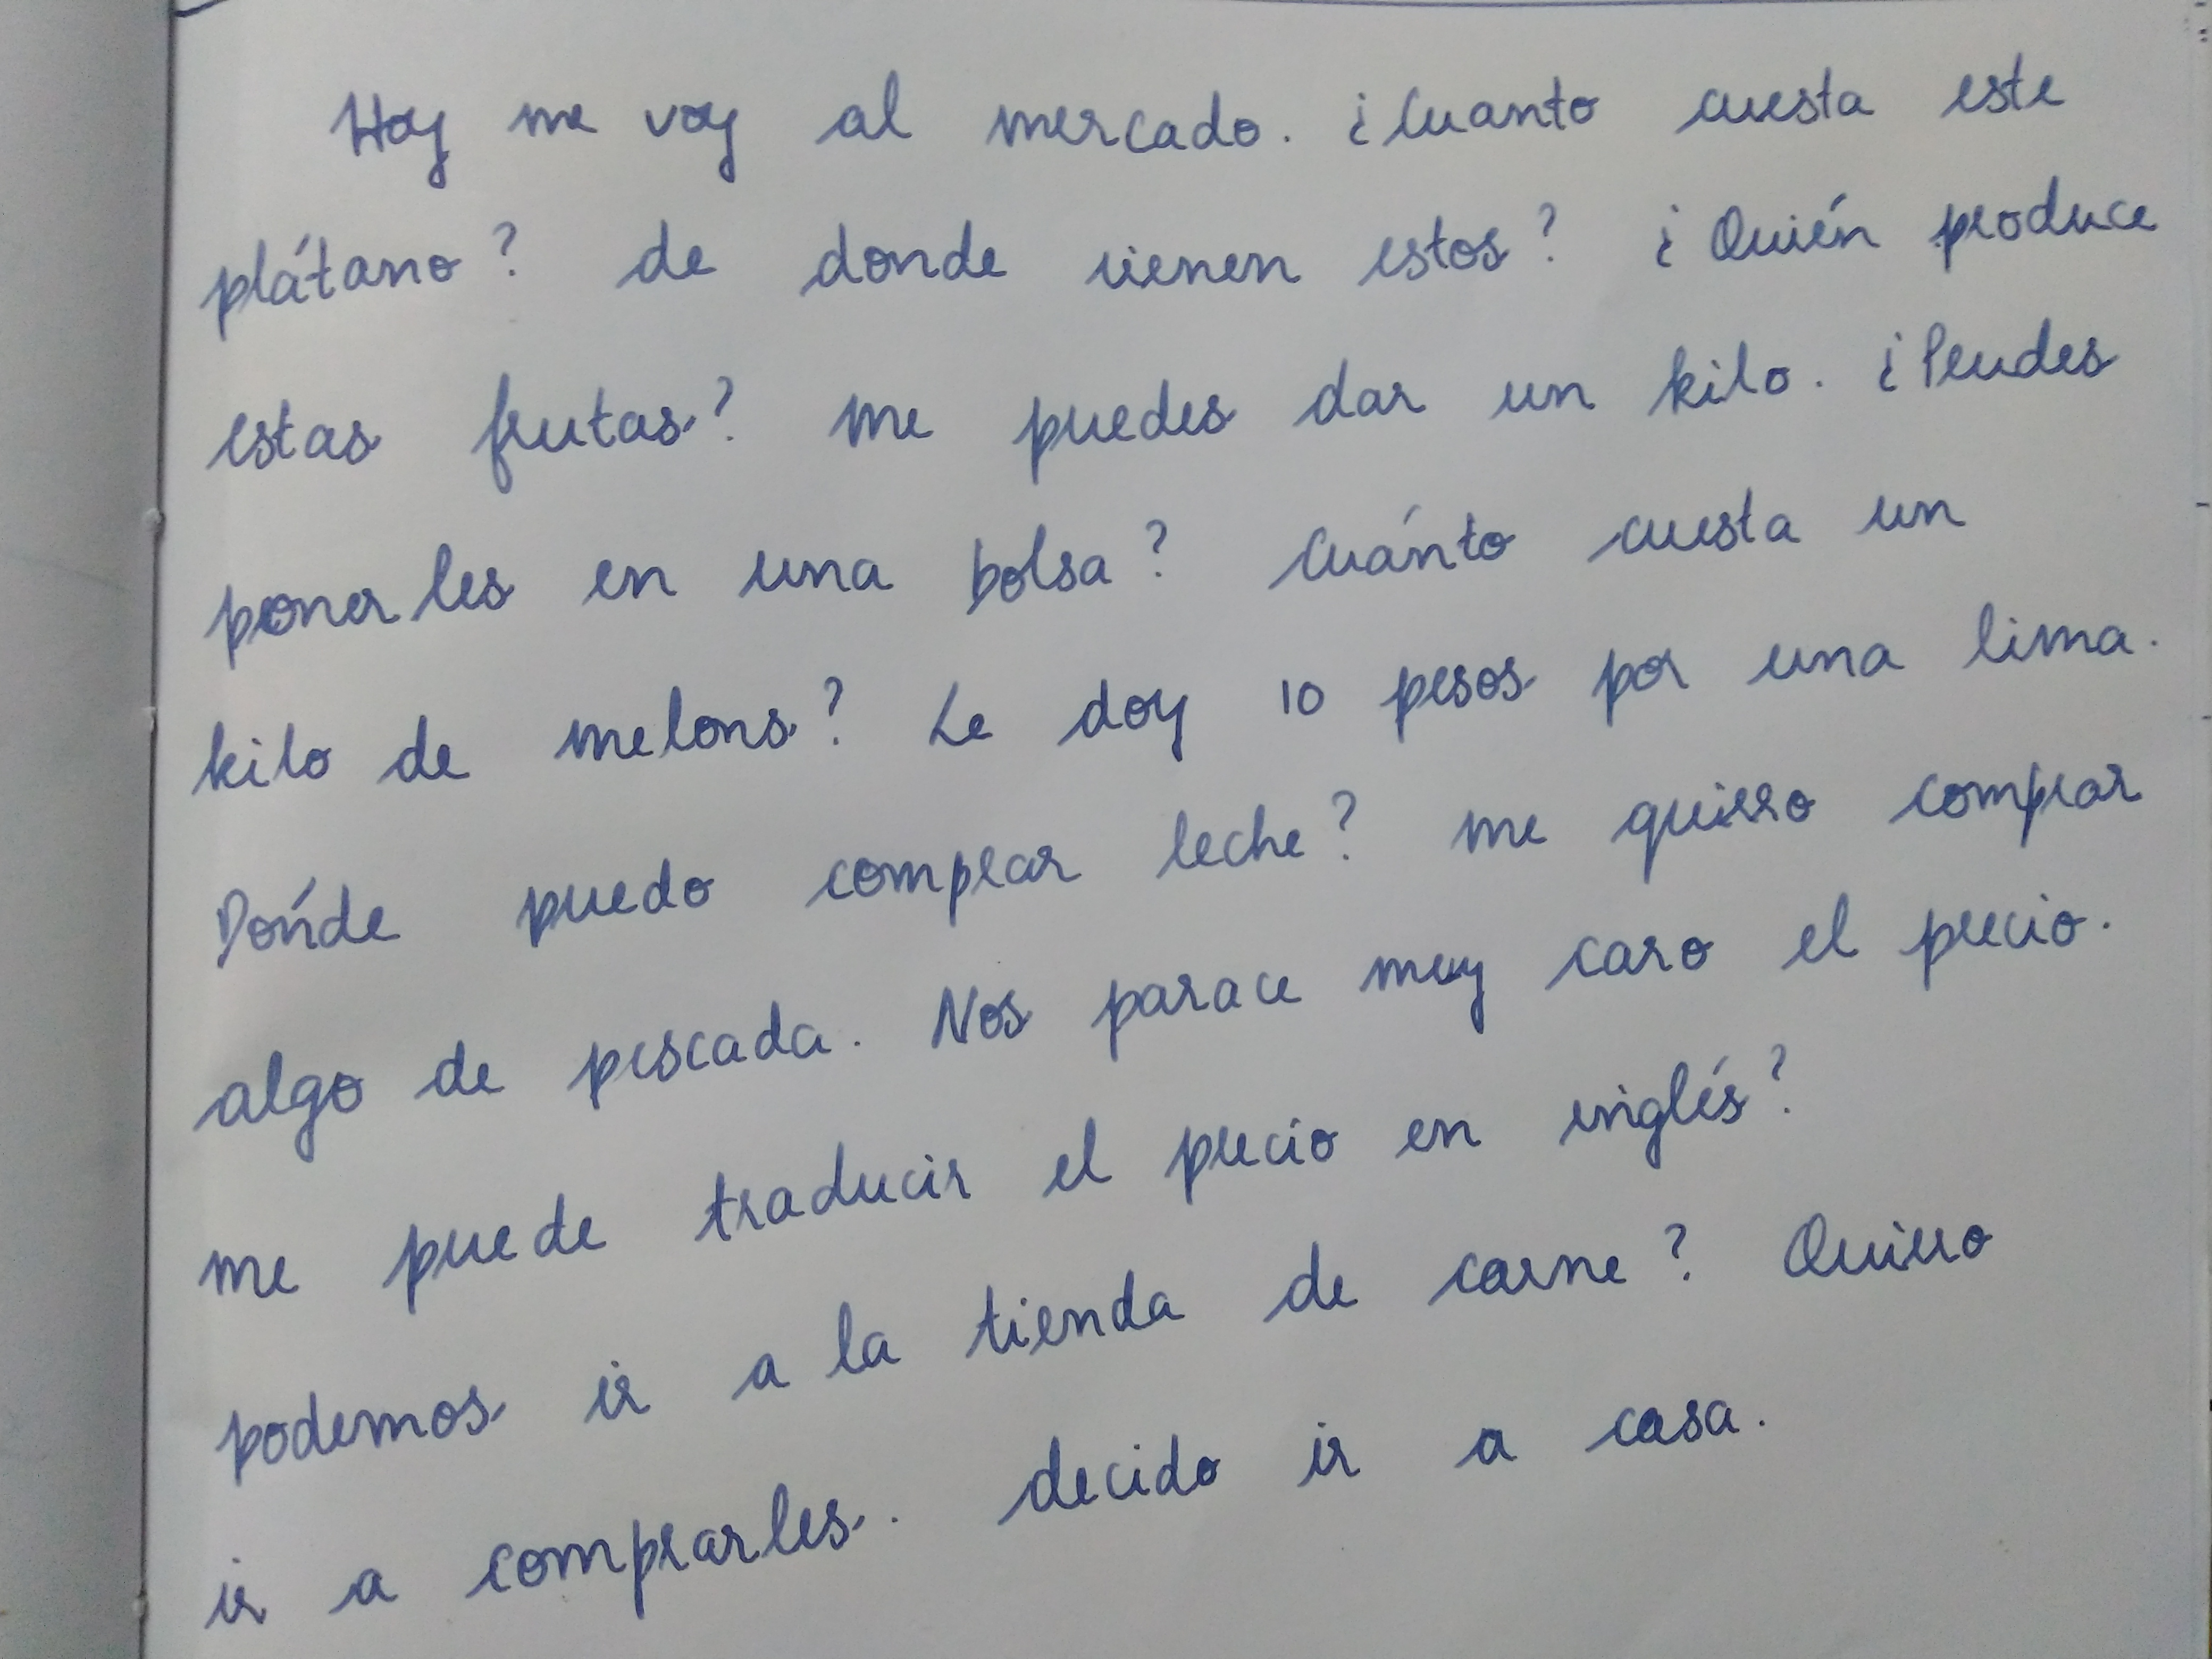 Hoy me voy al mercado. ¿Cuanto cuesta este
plátano? de donde vienen estos? ¿Quién produce
estas frutas? me puedes dar un kilo. ¿Peudes
ponerles en una bolsa? Cuánto cuesta un
kilo de melons? Le doy 10 pesos por una lima.
Dónde puedo comprar leche? me quiero comprar
algo de pescada. Nos parace muy caro el precio.
me puede traducir el precio en inglés?
podemos ir a la tienda de carne? Quiero
ir a comprarles. decido ir a casa.